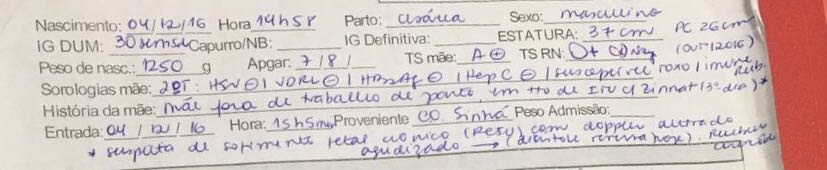 Nascimento: 04/12/16 Hora 14h58 Parto: cesárea Sexo: masculino
IG DUM: 30sem5d Capurro/NB: IG Definitiva: ESTATURA: 37cm PC 26cm
Peso de nasc.: 1250 g Apgar: 7/8/ TS mãe: A⊕ TS RN: O+ CD Neg (out/2016)
Sorologias mãe: 2ºT: HIV⊖ / VDRL⊖ / HBsAg⊖ / HepC⊖ / susceptível toxo / imune Rub.
História da mãe: Mãe fora de trabalho de parto, em tto de ITU c/ Zinnat (3º dia) *
Entrada: 04/12/16 Hora: 15h5min Proveniente CO Sinhá Peso Admissão:
* suspeita de sofrimento fetal crônico (RCIU) com doppler alterado
agudizado → (diástole reversa hoje). Recebeu